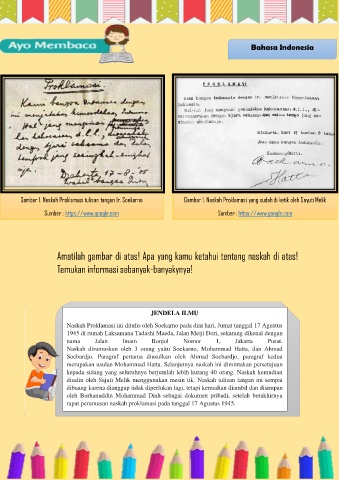 Ayo Membaca
Bahasa Indonesia
Proklamasi
Kami bangsa Indonesia dengan
ini menjatakan kemerdekaan
Hal2 jang mengenai
d.l.l.,
dengan tjara saksama dan dalam
tempoh jang sesingkat-singkat
nja.
Djakarta, 17 - 8 - 05
Wakil2 bangsa Indonesia
PROKLAMASI
Kami bangsa Indonesia dengan ini menjatakan Kemerdekaan
Indonesia.
Hal-hal jang mengenai pemindahan kekoeasaan d.l.l., di-
selenggarakan dengan tjara seksama dan dalam tempo jang se-
singkat-singkatnja.
Djakarta, hari 17 boelan 8 tahoen
Atas nama bangsa Indonesia.
Soekarno/Hatta.
Soekarno
Hatta
Gambar 1. Naskah Proklamasi tulisan tangan Ir. Soekarno
Sumber : https://www.google.com
Gambar 1. Naskah Proklamasi yang sudah di ketik oleh Sayuti Melik
Sumber : https://www.google.com
Amatilah gambar di atas! Apa yang kamu ketahui tentang naskah di atas!
Temukan informasi sebanyak-banyaknya!
JENDELA ILMU
Naskah Proklamasi ini ditulis oleh Soekarno pada dini hari, Jumat tanggal 17 Agustus
1945 di rumah Laksamana Tadashi Maeda, Jalan Meiji Dori, sekarang dikenal dengan
nama Jalan Imam Bonjol Nomor 1, Jakarta Pusat.
Naskah dirumuskan oleh 3 orang yaitu Soekarno, Mohammad Hatta, dan Ahmad
Soebardjo. Paragraf pertama diusulkan oleh Ahmad Soebardjo, paragraf kedua
merupakan usulan Mohammad Hatta. Selanjutnya naskah ini dimintakan persetujuan
kepada sidang yang seluruhnya berjumlah lebih kurang 40 orang. Naskah kemudian
disalin oleh Sajuti Melik menggunakan mesin tik. Naskah tulisan tangan ini sempat
dibuang karena dianggap tidak diperlukan lagi, tetapi kemudian diambil dan disimpan
oleh Burhanuddin Mohammad Diah sebagai dokumen pribadi, setelah berakhirnya
rapat perumusan naskah proklamasi pada tanggal 17 Agustus 1945.